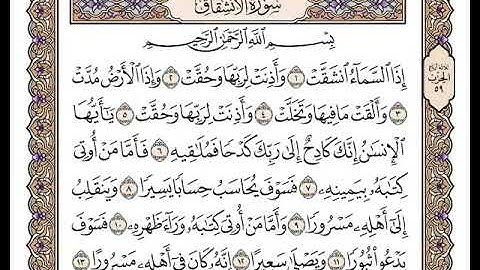 سُورَةُ الِانشِقَاقِ
بِسْمِ ٱللَّهِ ٱلرَّحْمَٰنِ ٱلرَّحِيمِ
إِذَا ٱلسَّمَآءُ ٱنشَقَّتْ ١ وَأَذِنَتْ لِرَبِّهَا وَحُقَّتْ ٢ وَإِذَا ٱلْأَرْضُ مُدَّتْ
٣ وَأَلْقَتْ مَا فِيهَا وَتَخَلَّتْ ٤ وَأَذِنَتْ لِرَبِّهَا وَحُقَّتْ ٥ يَٰٓأَيُّهَا
ٱلْإِنسَٰنُ إِنَّكَ كَادِحٌ إِلَىٰ رَبِّكَ كَدْحًا فَمُلَٰقِيهِ ٦ فَأَمَّا مَنْ أُوتِىَ
كِتَٰبَهُۥ بِيَمِينِهِۦ ٧ فَسَوْفَ يُحَاسَبُ حِسَابًا يَسِيرًا ٨ وَيَنقَلِبُ
إِلَىٰٓ أَهْلِهِۦ مَسْرُورًا ٩ وَأَمَّا مَنْ أُوتِىَ كِتَٰبَهُۥ وَرَآءَ ظَهْرِهِۦ ١٠ فَسَوْفَ
يَدْعُوا۟ ثُبُورًا ١١ وَيَصْلَىٰ سَعِيرًا ١٢ إِنَّهُۥ كَانَ فِىٓ أَهْلِهِۦ مَسْرُورًا ١٣
الحزب
٥٩